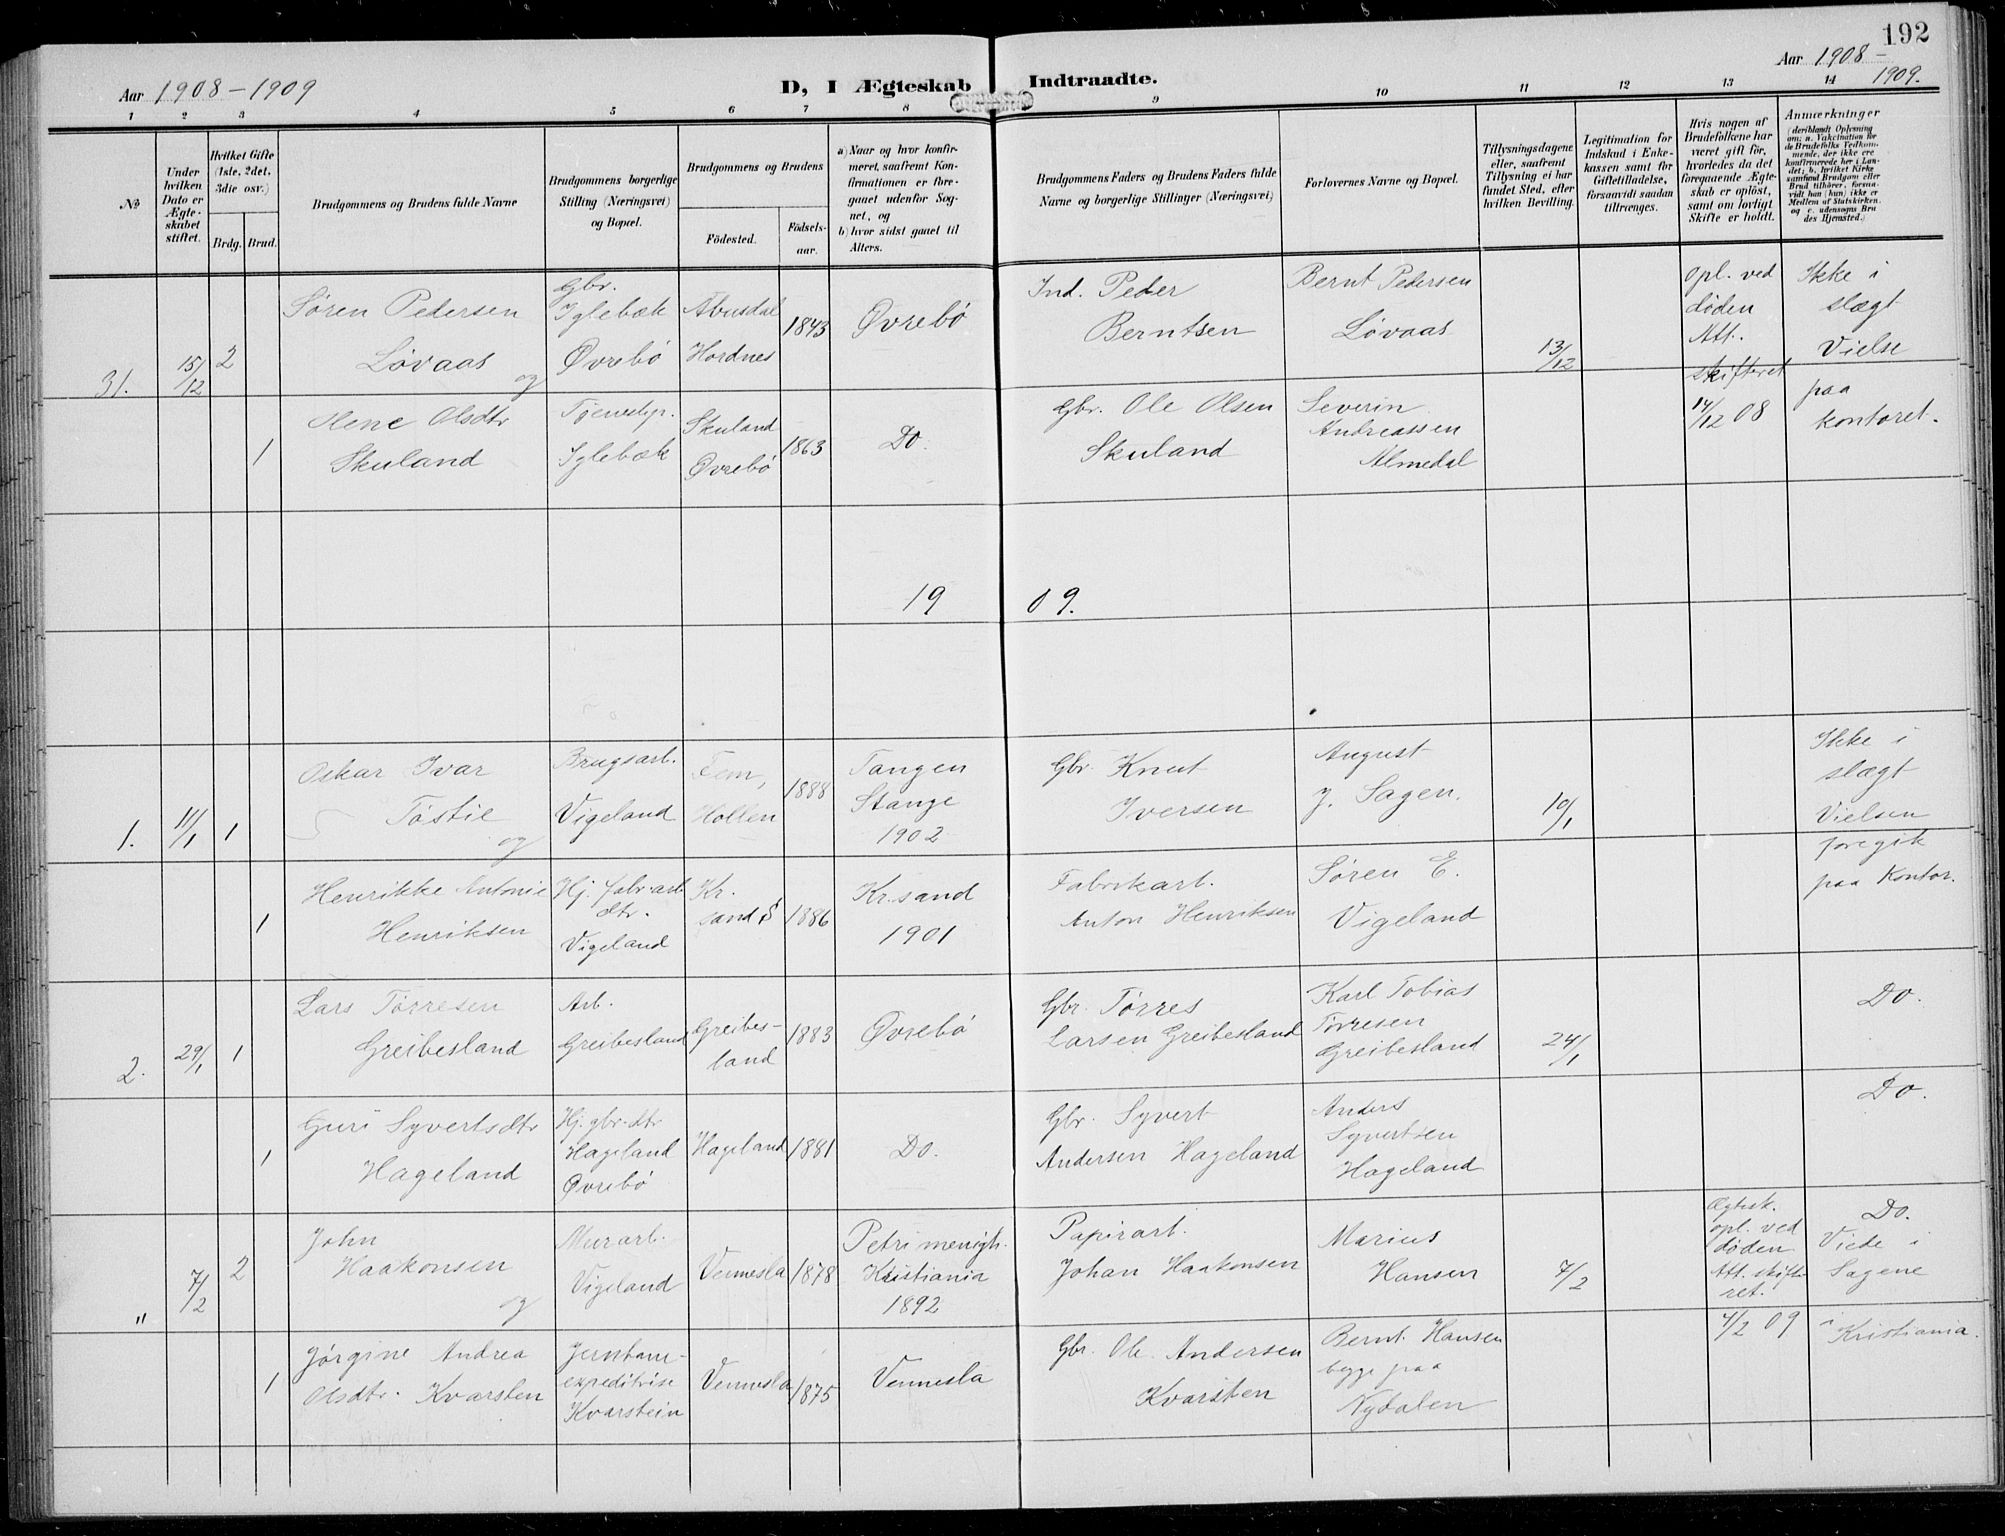 192
Aar 1908-1909
D, I Ægteskab Indtraadte.
Aar 1908-
1909.
1 2 3 4 5 6 7 8 9 10 11 12 13 14
No
Under hvilken Dato er Ægteskabet stiftet.
Hvilket Gifte (1ste, 2det, 3die osv.)
Brdg. Brud.
Brudgommens og Brudens fulde Navne
Brudgommens borgerlige Stilling (Næringsvei) og Bopæl.
Brudgommens og Brudens
Födested.
Födselsaar.
a) Naar og hvor konfirmeret, saafremt Konfirmationen er foregaaet udenfor Sognet, og
b) hvor sidst gaaet til Alters.
Brudgommens Faders og Brudens Faders fulde Navne og borgerlige Stillinger (Næringsvei)
Forlovernes Navne og Bopæl.
Tillysningsdagene eller, saafremt Tillysning ei har fundet Sted, efter hvilken Bevilling.
Legitimation for Indskud i Enkekassen samt for Giftetilladelse, forsaavidt saadan tiltrænges.
Hvis nogen af Brudefolkene har været gift för, hvorledes da det foregaaende Ægteskab er oplöst, samt om lovligt Skifte er holdt.
Anmærkninger (deriblandt Oplysning om: a. Vakcination for de Brudefolks Vedkommende, der ikke ere konfirmerede her i Landet; b. hvilket Kirkesamfund Brudgom eller Brud tilhörer, forsaavidt han (hun) ikke er Medlem af Statskirken. og c. udensogns Brudes Hjemsted.)
31. 15/12 2
Søren Pedersen
Løvaas og
Gbr.
Iglebæk
Øvrebø
Hordnes
1843
Øvrebø
Ind. Peder
Berntsen
Bernt Pedersen
Løvaas
13/12
opl. ved
døden
Att.
skifteret
14/12 08
Ikke i
slægt
Vielse
paa
kontoret.
1
Olsdtr
Skuland
Tjenestyp.
Iglebæk
Skuland
Øvrebø
1863
Do.
Gbr. Ole Olsen
Skuland
Severin
Andreassen
Almedal
1909.
1. 11/1 1
Oskar Ivar
Tøstie
og
Brugsarb.
Vigeland
Hollen
1888
Tangen
Stange
1902
Gbr. Knut
Iversen
August
J. Sagen.
10/1
Ikke i
slægt
Vielsen
foregik
paa Kontor.
1
Henrikke Antonie
Henriksen
Hj. fabr-arb.
dtr.
Vigeland
Kr.
sand S
1886
Kr.sand
1901
Fabrikarb.
Anton Henriksen
Søren E.
Vigeland
2. 29/1 1
Lars Tørresen
Greibesland
Arb.
Greibesland
Greibes-
land
1883
Øvrebø
Gbr. Tørres
Larsen Greibesland
Karl Tobias
Tørresen
Greibesland
24/1
Do.
1
Guri Syvertsdtr
Hageland
Hj. gbr-dtr
Hageland
Øvrebø
Hageland
1881
Do.
Gbr. Syvert
Andersen Hageland
Anders
Syvertsen
Hageland
Do.
" 7/2 2
John
Haakonsen
og
Murarb.
Vigeland
Vennesla
1878
Petri menigh.
Kristiania
1892
Papirarb.
Johan Haakonsen
Marius
Hansen
7/2
Ægtesk.
opl. ved
døden
Att. skifte-
ret.
4/2 09
Do.
Viede i
Sagene
i Kristiania.
1
Jørgine Andrea
Olsdtr. Kvarsten
Jernbane-
expeditrise
Kvarstein
Vennesla
1875
Vennesla
Gbr. Ole Andersen
Kvarsten
Bernt Hansen
begge paa
Nydalen